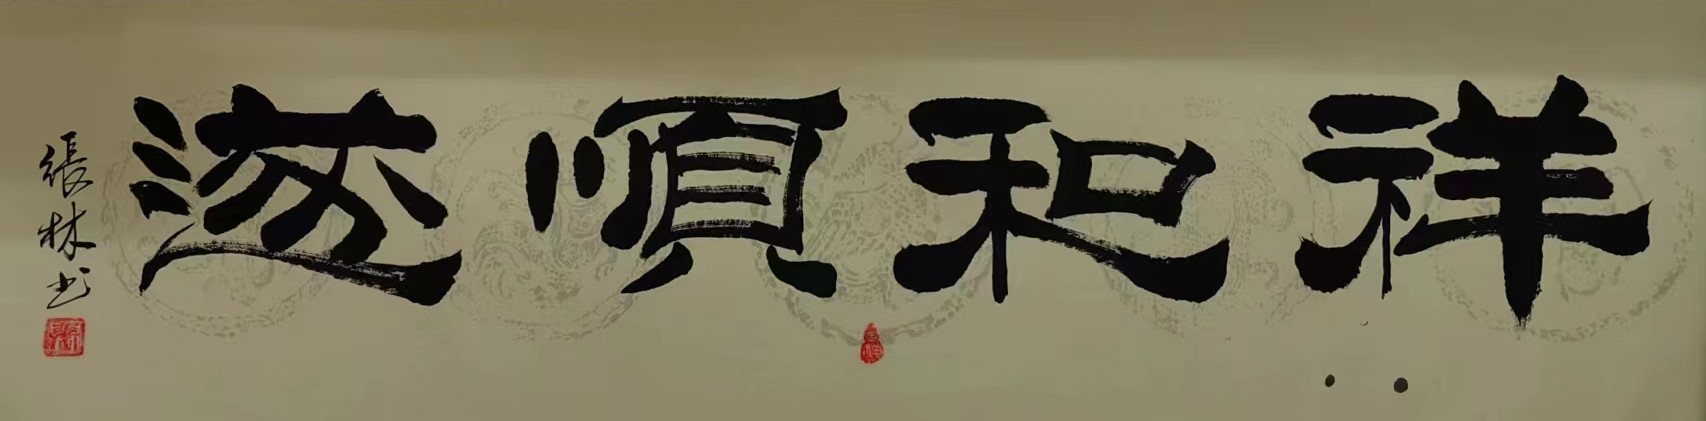 祥和順遂
張林书